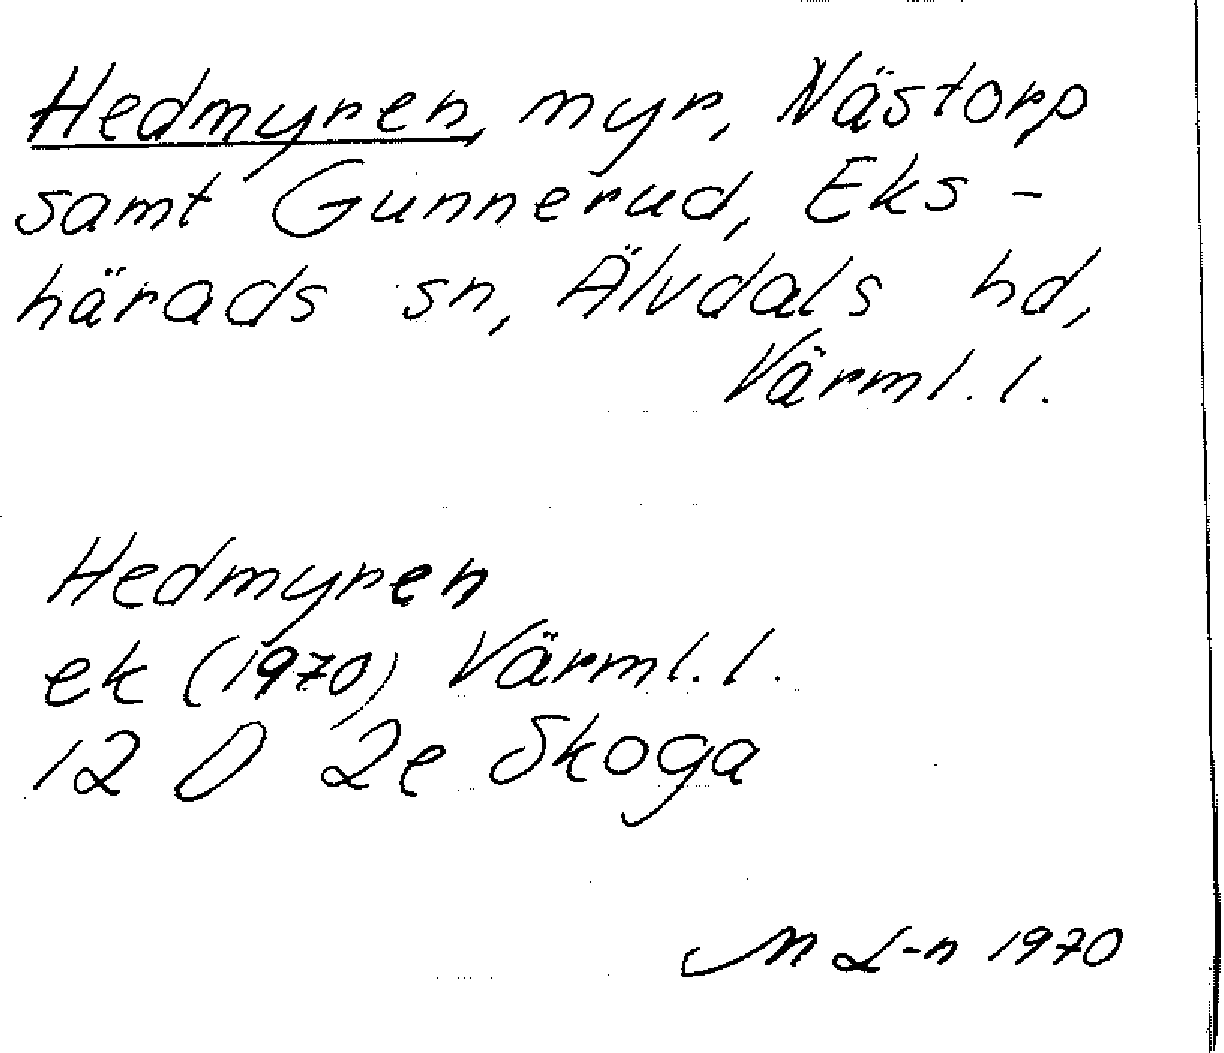 Hedmyren, myr, Nästorp
samt Gunnerud, Eks-
härads sn, Älvdals hd,
Värml. l.
Hedmyren
ek (1970) Värml. l.
12 D 2e Skoga
M L-n 1970